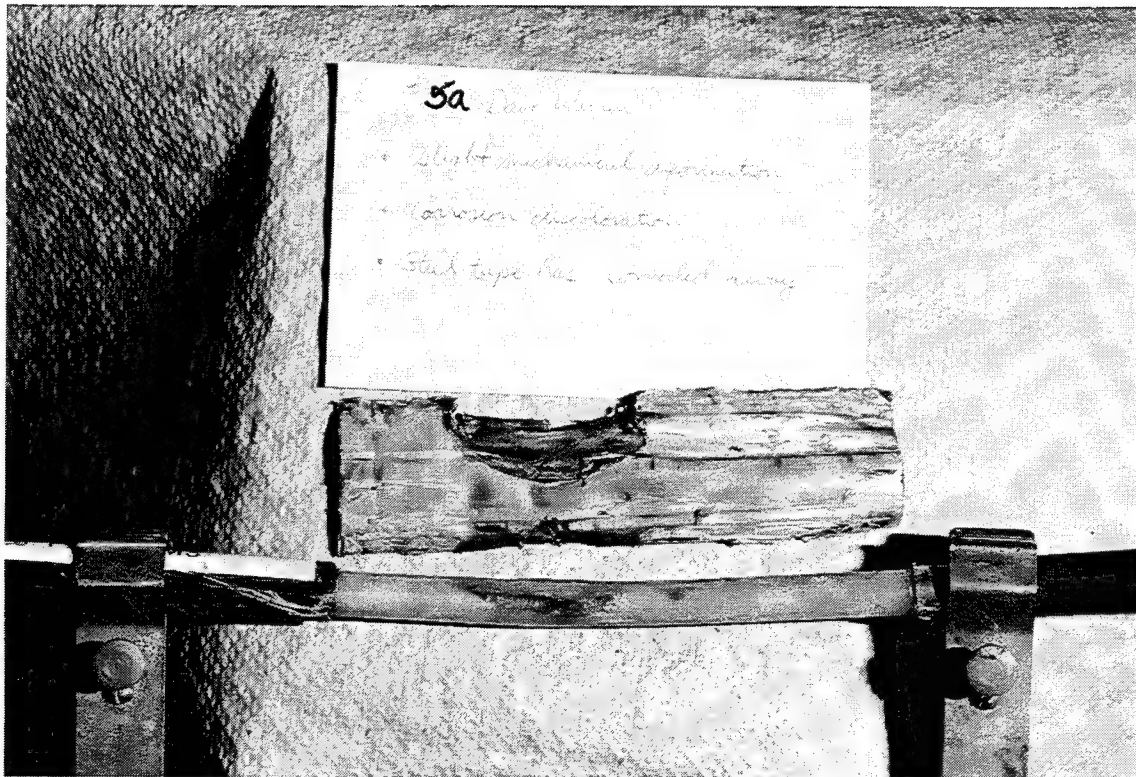 5a
• Slight mechanical
• Corrosion discoloration
• Steel tape has corroded away